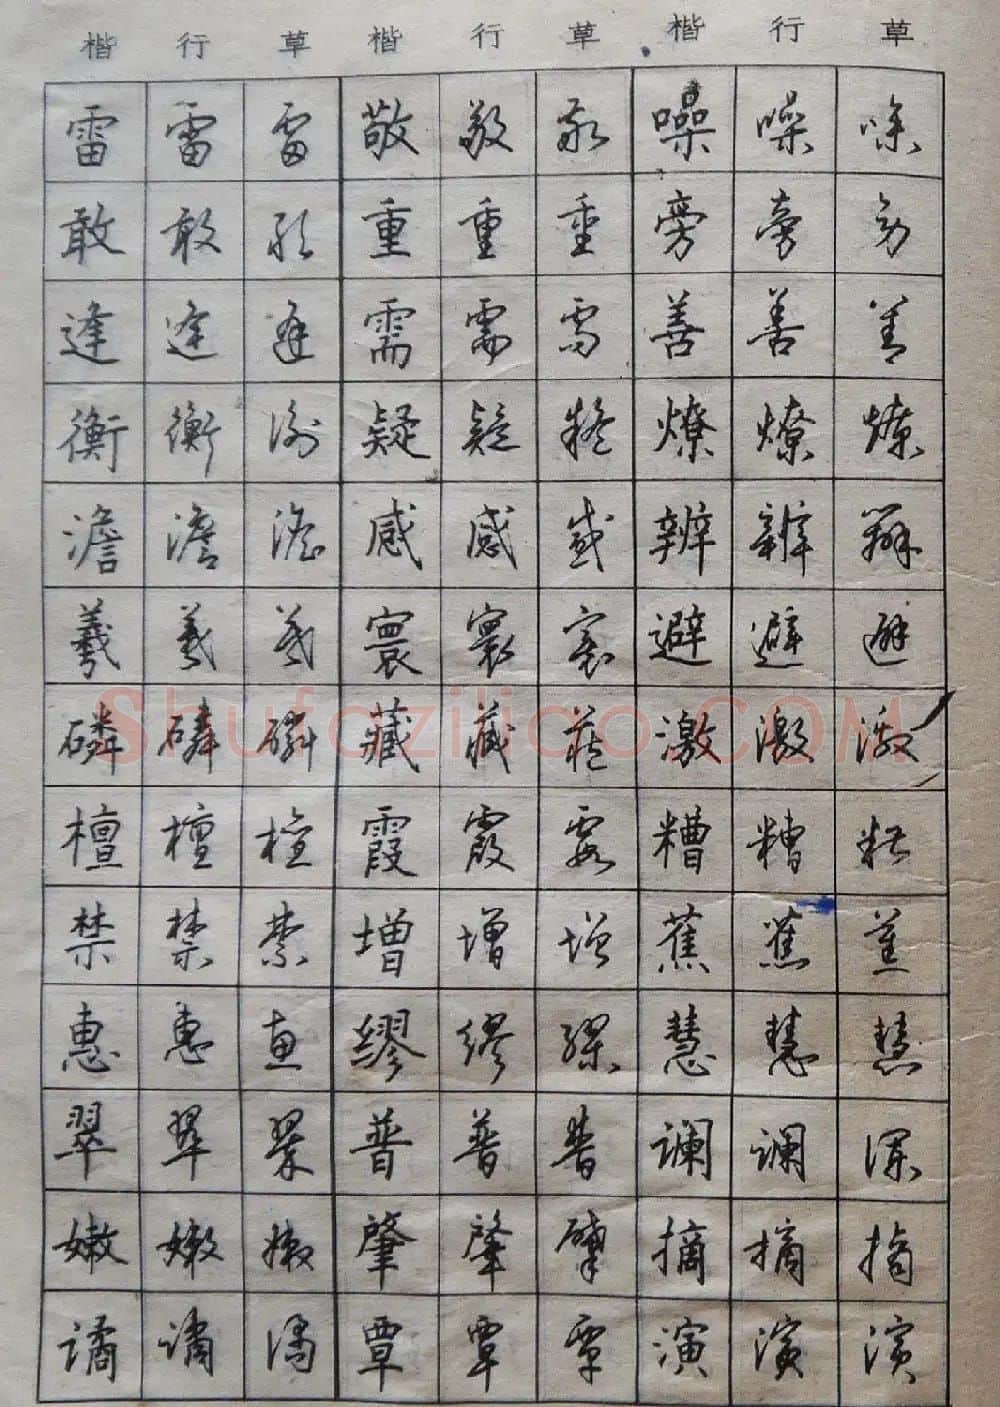 楷 行 草 楷 行 草 楷 行 草
雷 雷 雷 敬 敬 敬 噪 噪 噪
敢 敢 敢 重 重 重 旁 旁 旁
逢 逢 逢 需 需 需 善 善 善
衡 衡 衡 疑 疑 疑 燎 燎 燎
澹 澹 澹 感 感 感 辨 辨 辨
羲 羲 羲 寰 寰 寰 避 避 避
磷 磷 磷 藏 藏 藏 激 激 激
Shufaziliao.COM
檀 檀 檀 霞 霞 霞 糟 糟 糟
禁 禁 禁 增 增 增 蕉 蕉 蕉
惠 惠 惠 缪 缪 缪 慧 慧 慧
翠 翠 翠 普 普 普 谰 谰 谰
嫩 嫩 嫩 肇 肇 肇 摘 摘 摘
谲 谲 谲 覃 覃 覃 演 演 演